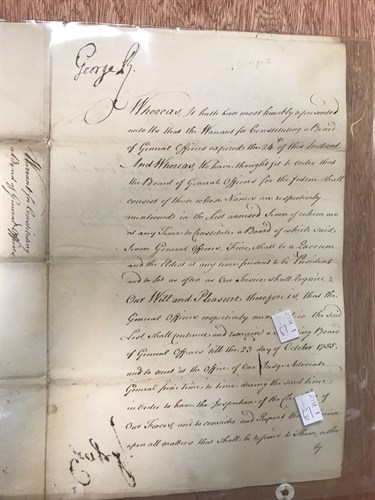 George R
Whereas, It hath been most humbly represented
unto Us that the Warrant for Constituting a Board
of General Officers expired the 24 of this Instant
And Whereas, We have thought fit to order that
the Board of General Officers for the future shall
consist of those whose Names are respectively
mentioned in the List annexed Seven of whom are
at any Time to Constitute a Board of which said
Seven General Officers, Five, shall be a Quorum
and the Eldest at any time present to be President
and to sit as often as Our Service shall require
Our Will and Pleasure therefore is, that the
General Officers respectively in the said
List shall continue and remain a Board
of General Officers till the 23 day of October
and to meet at the Office of Our Judge Advocate
General from time to time during the said time
in Order to have the Inspection of the
Our Forces, and to consider and Report
upon all matters that shall be referred to Them, either
by
Warrant for Constituting
a Board of General Officers